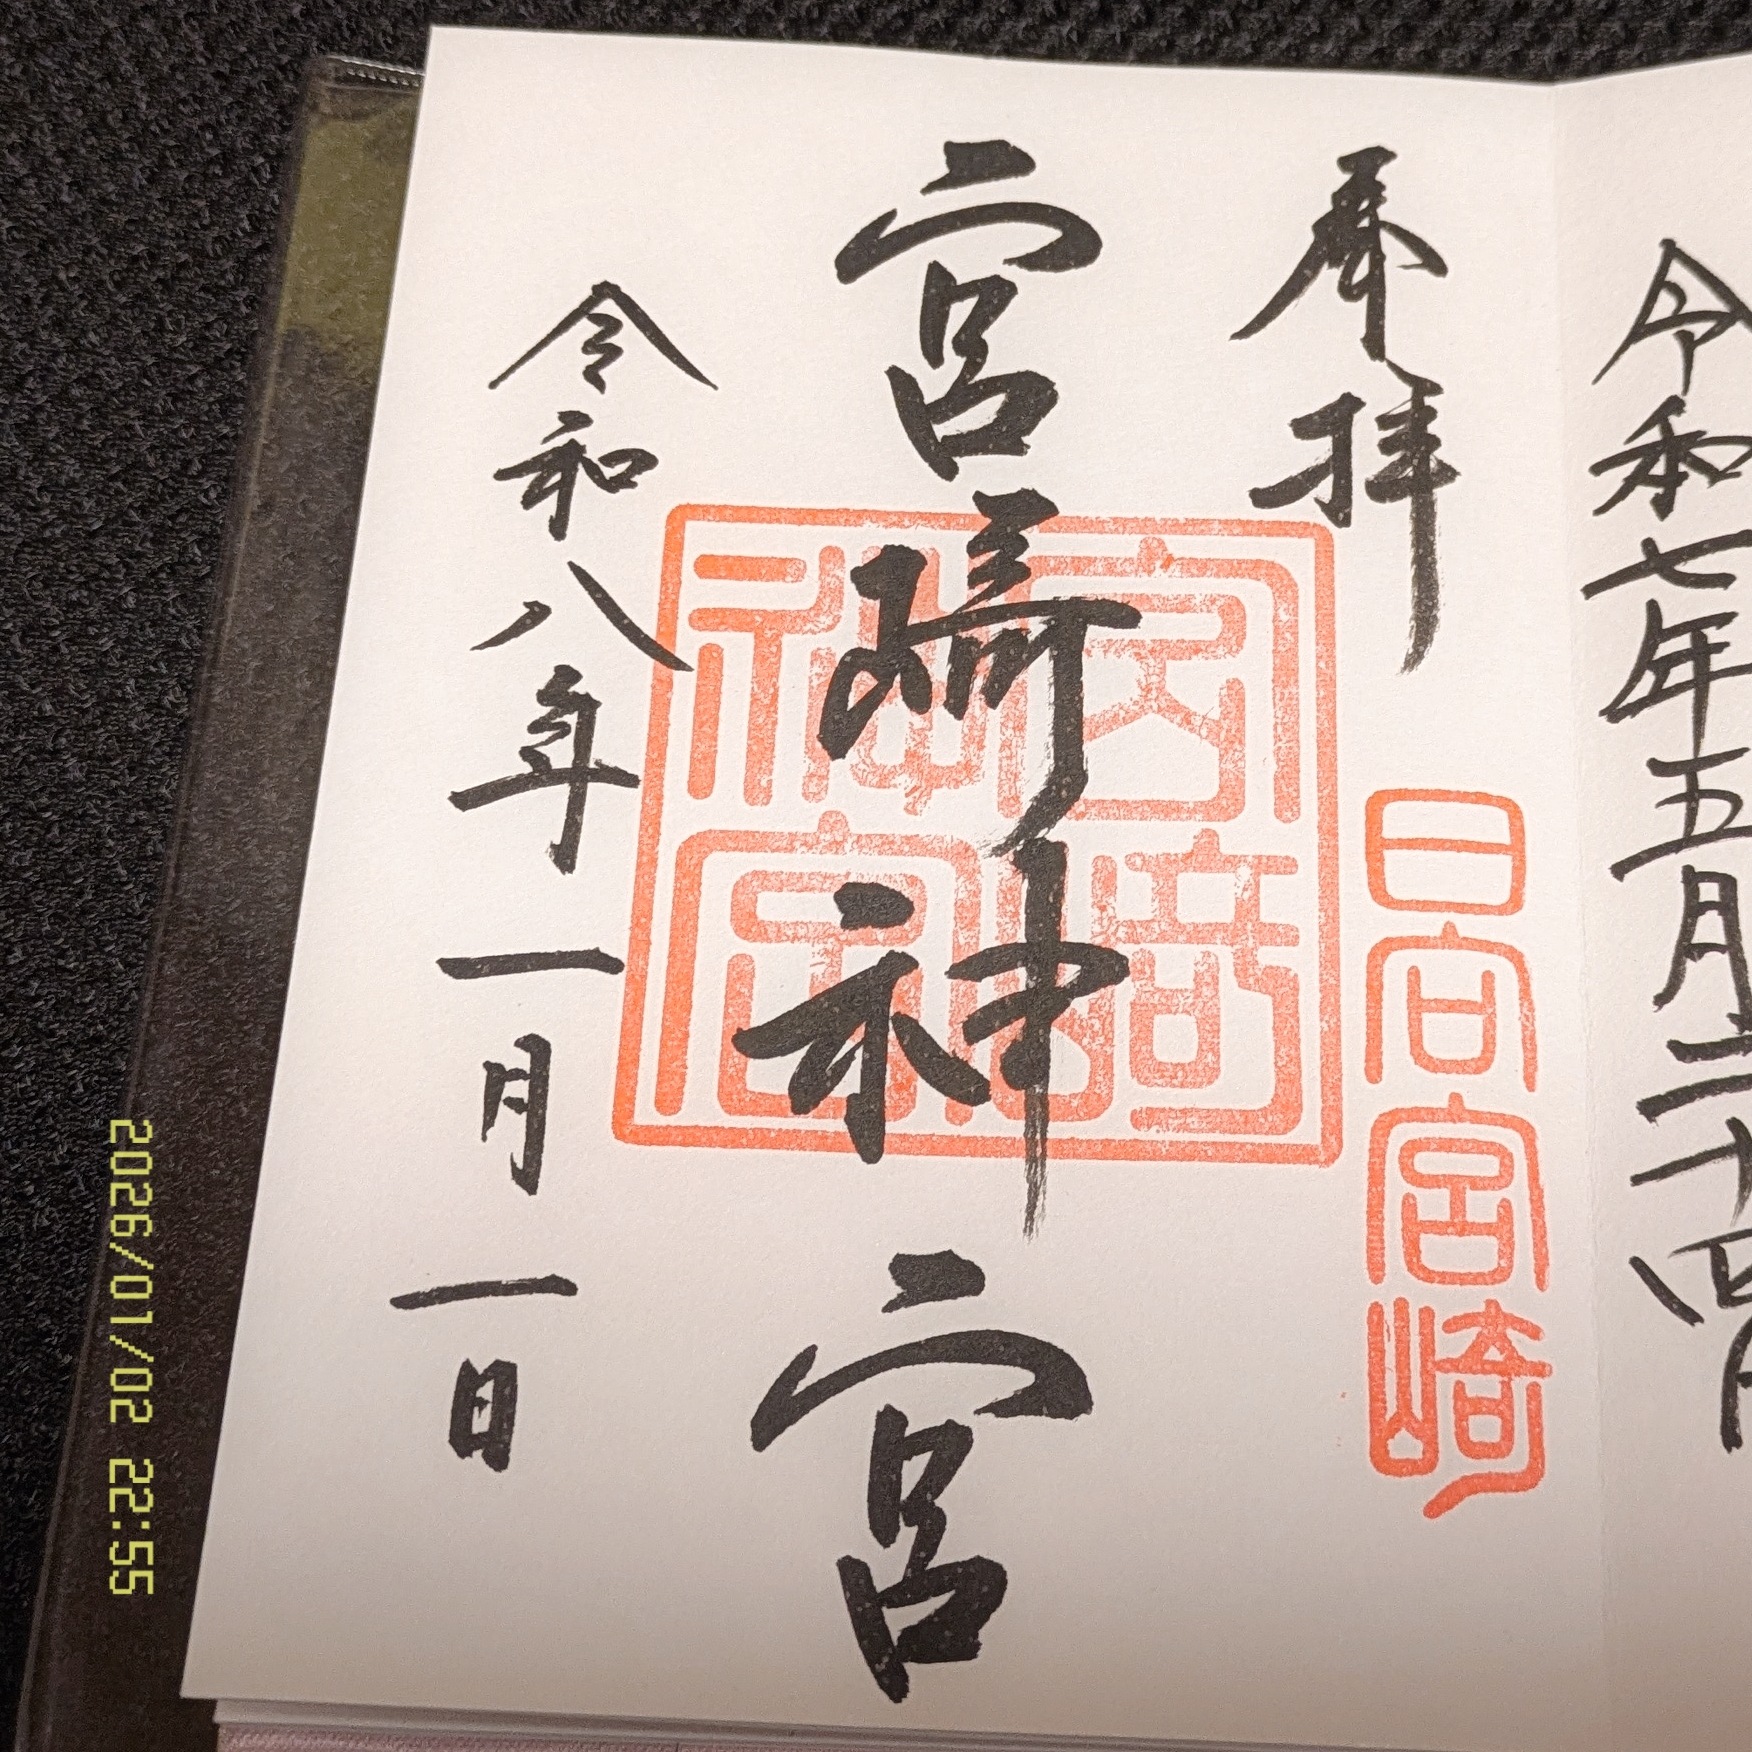 令和七年五月二十四日
奉拝
日向宮崎
宮﨑神宮
宮崎神宮
令和八年一月一日
2026/01/02 22:55